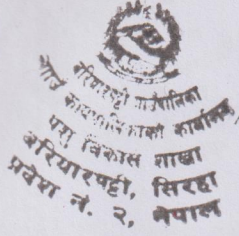 बरियारपट्टी गाउँपालिका
गाउँ कार्यपालिकाको कार्यालय
पशु विकास शाखा
बरियारपट्टी, सिरहा
प्रदेश नं. २, नेपाल